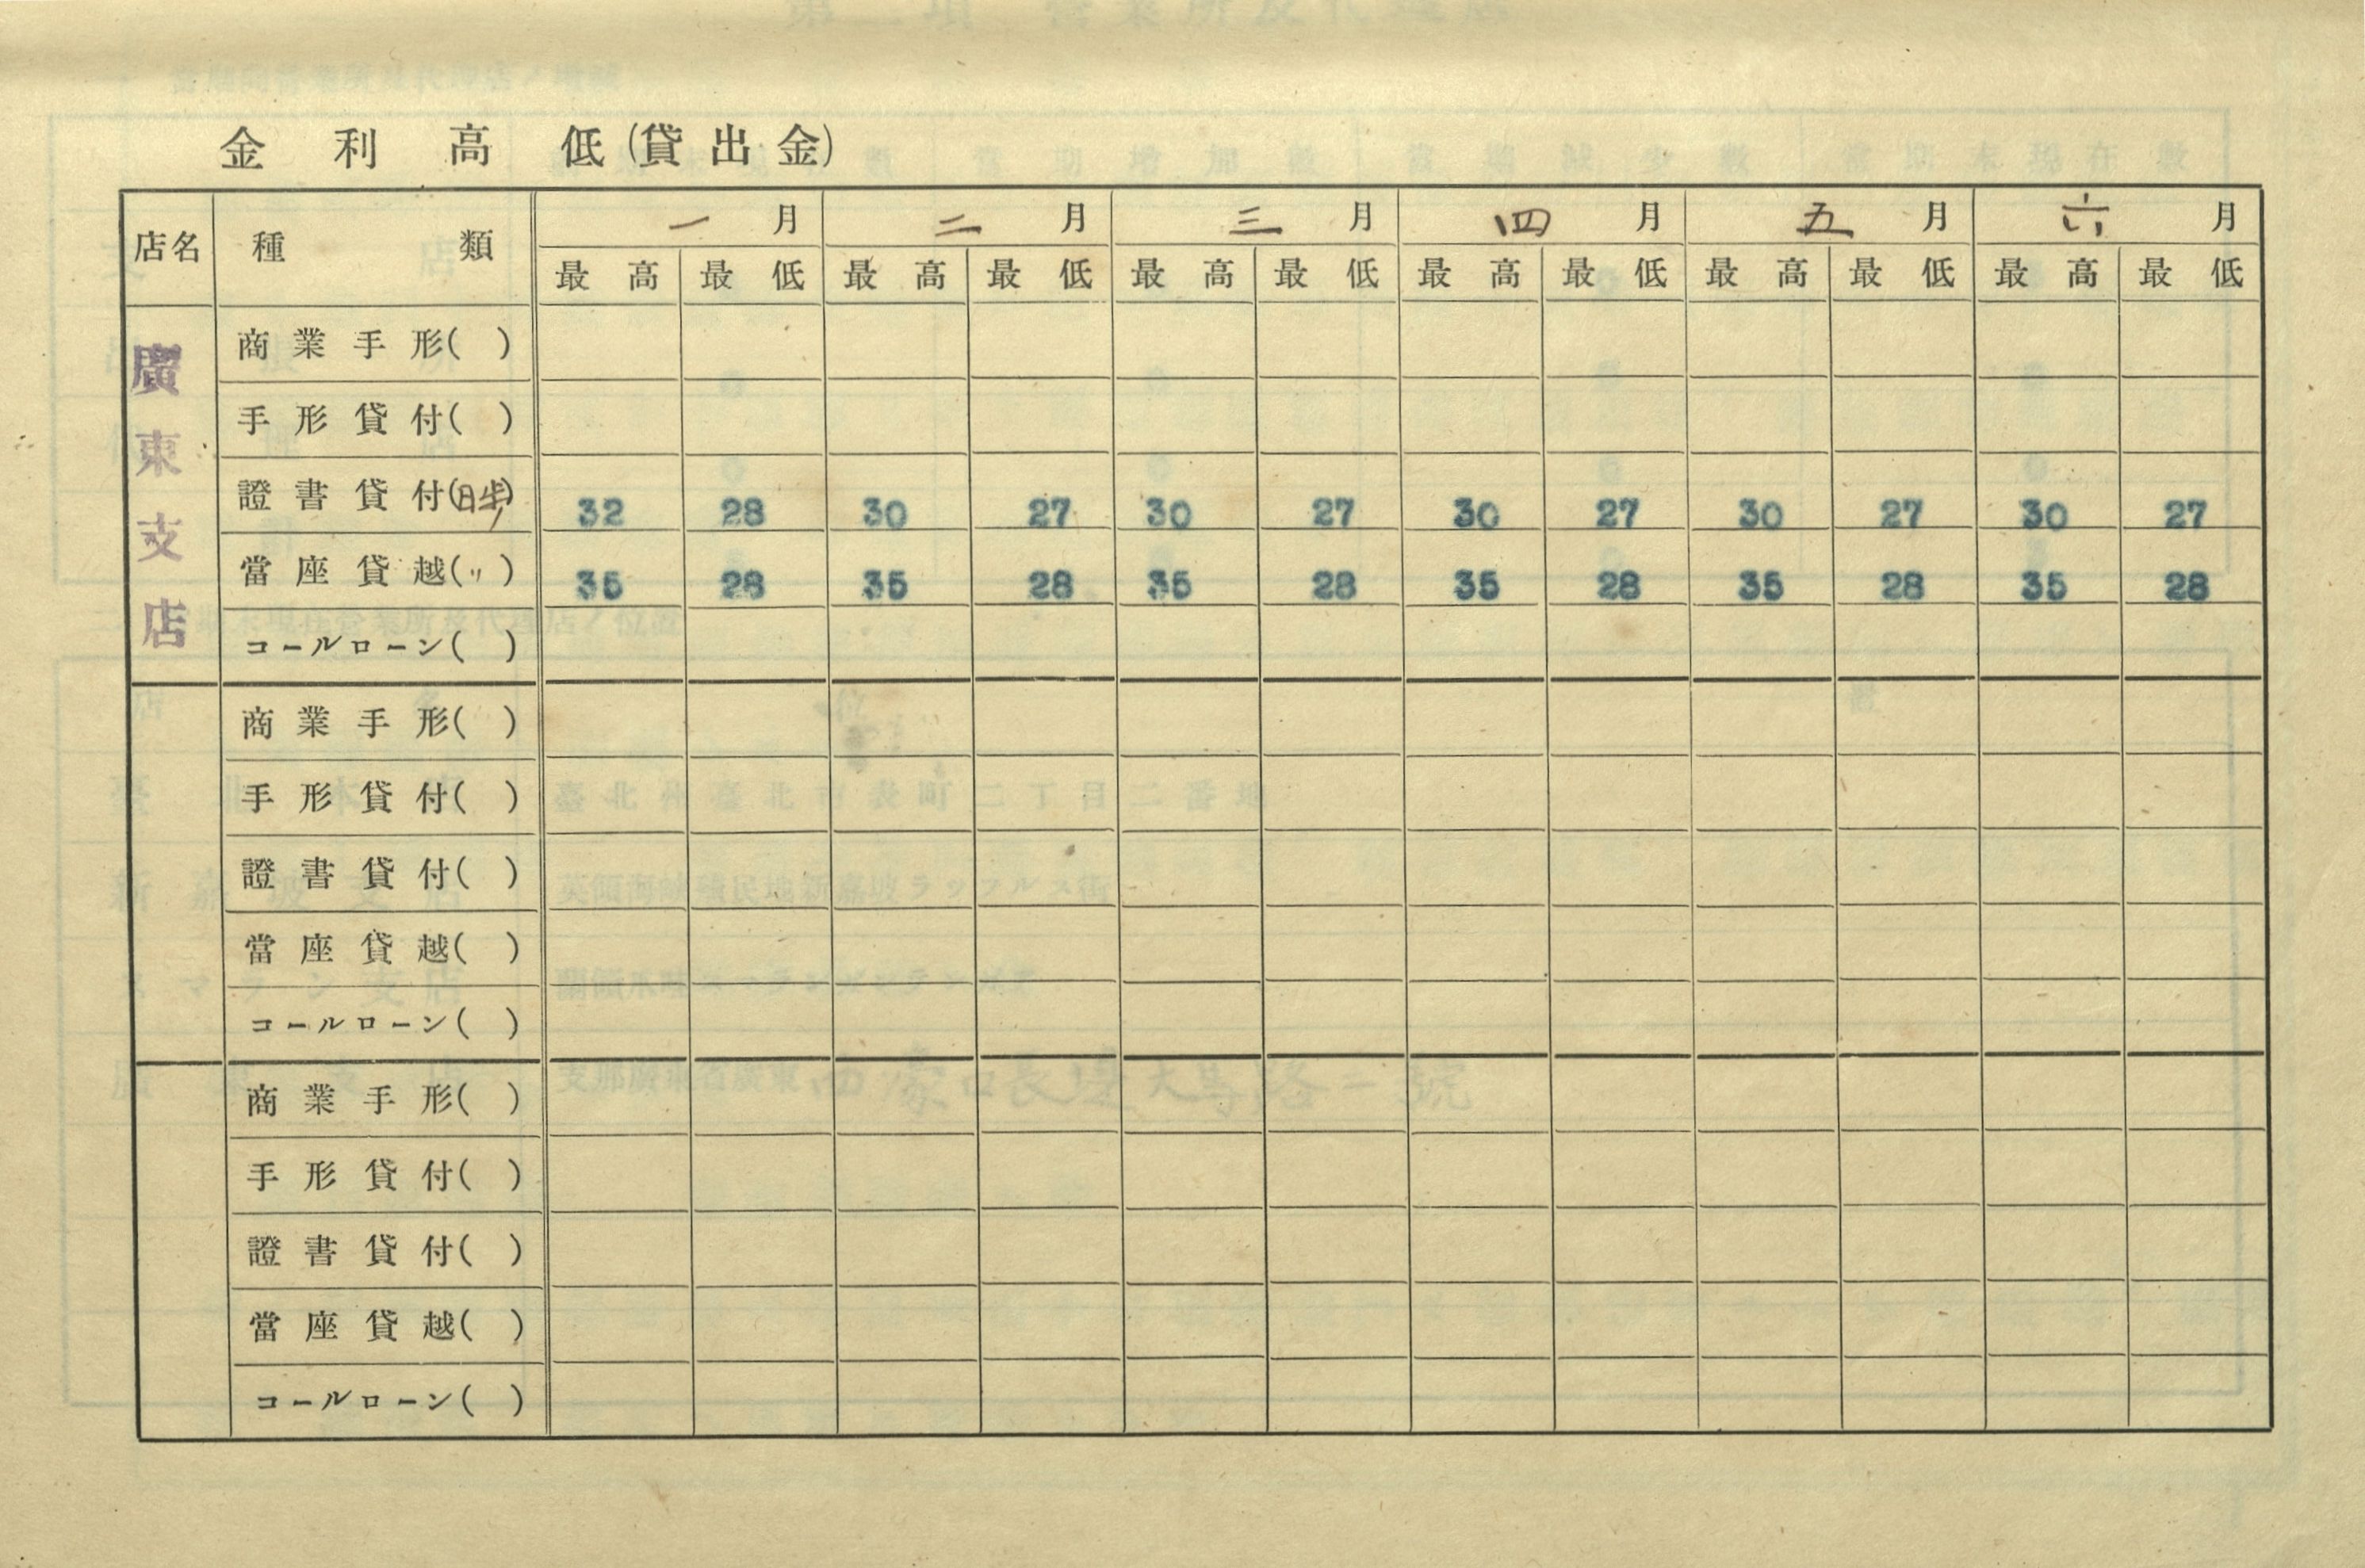 金利高低(貸出金)
店名 種類 一月 二月 三月 四月 五月 六月
最高 最低 最高 最低 最高 最低 最高 最低 最高 最低 最高 最低
廣東支店
商業手形( )
手形貸付( )
證書貸付(日歩) 32 28 30 27 30 27 30 27 30 27 30 27
當座貸越(〃) 35 28 35 28 35 28 35 28 35 28 35 28
コールローン( )
商業手形( )
手形貸付( )
證書貸付( )
當座貸越( )
コールローン( )
商業手形( )
手形貸付( )
證書貸付( )
當座貸越( )
コールローン( )